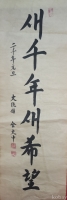 새千年새希望
二千年元旦
大統領 金大中